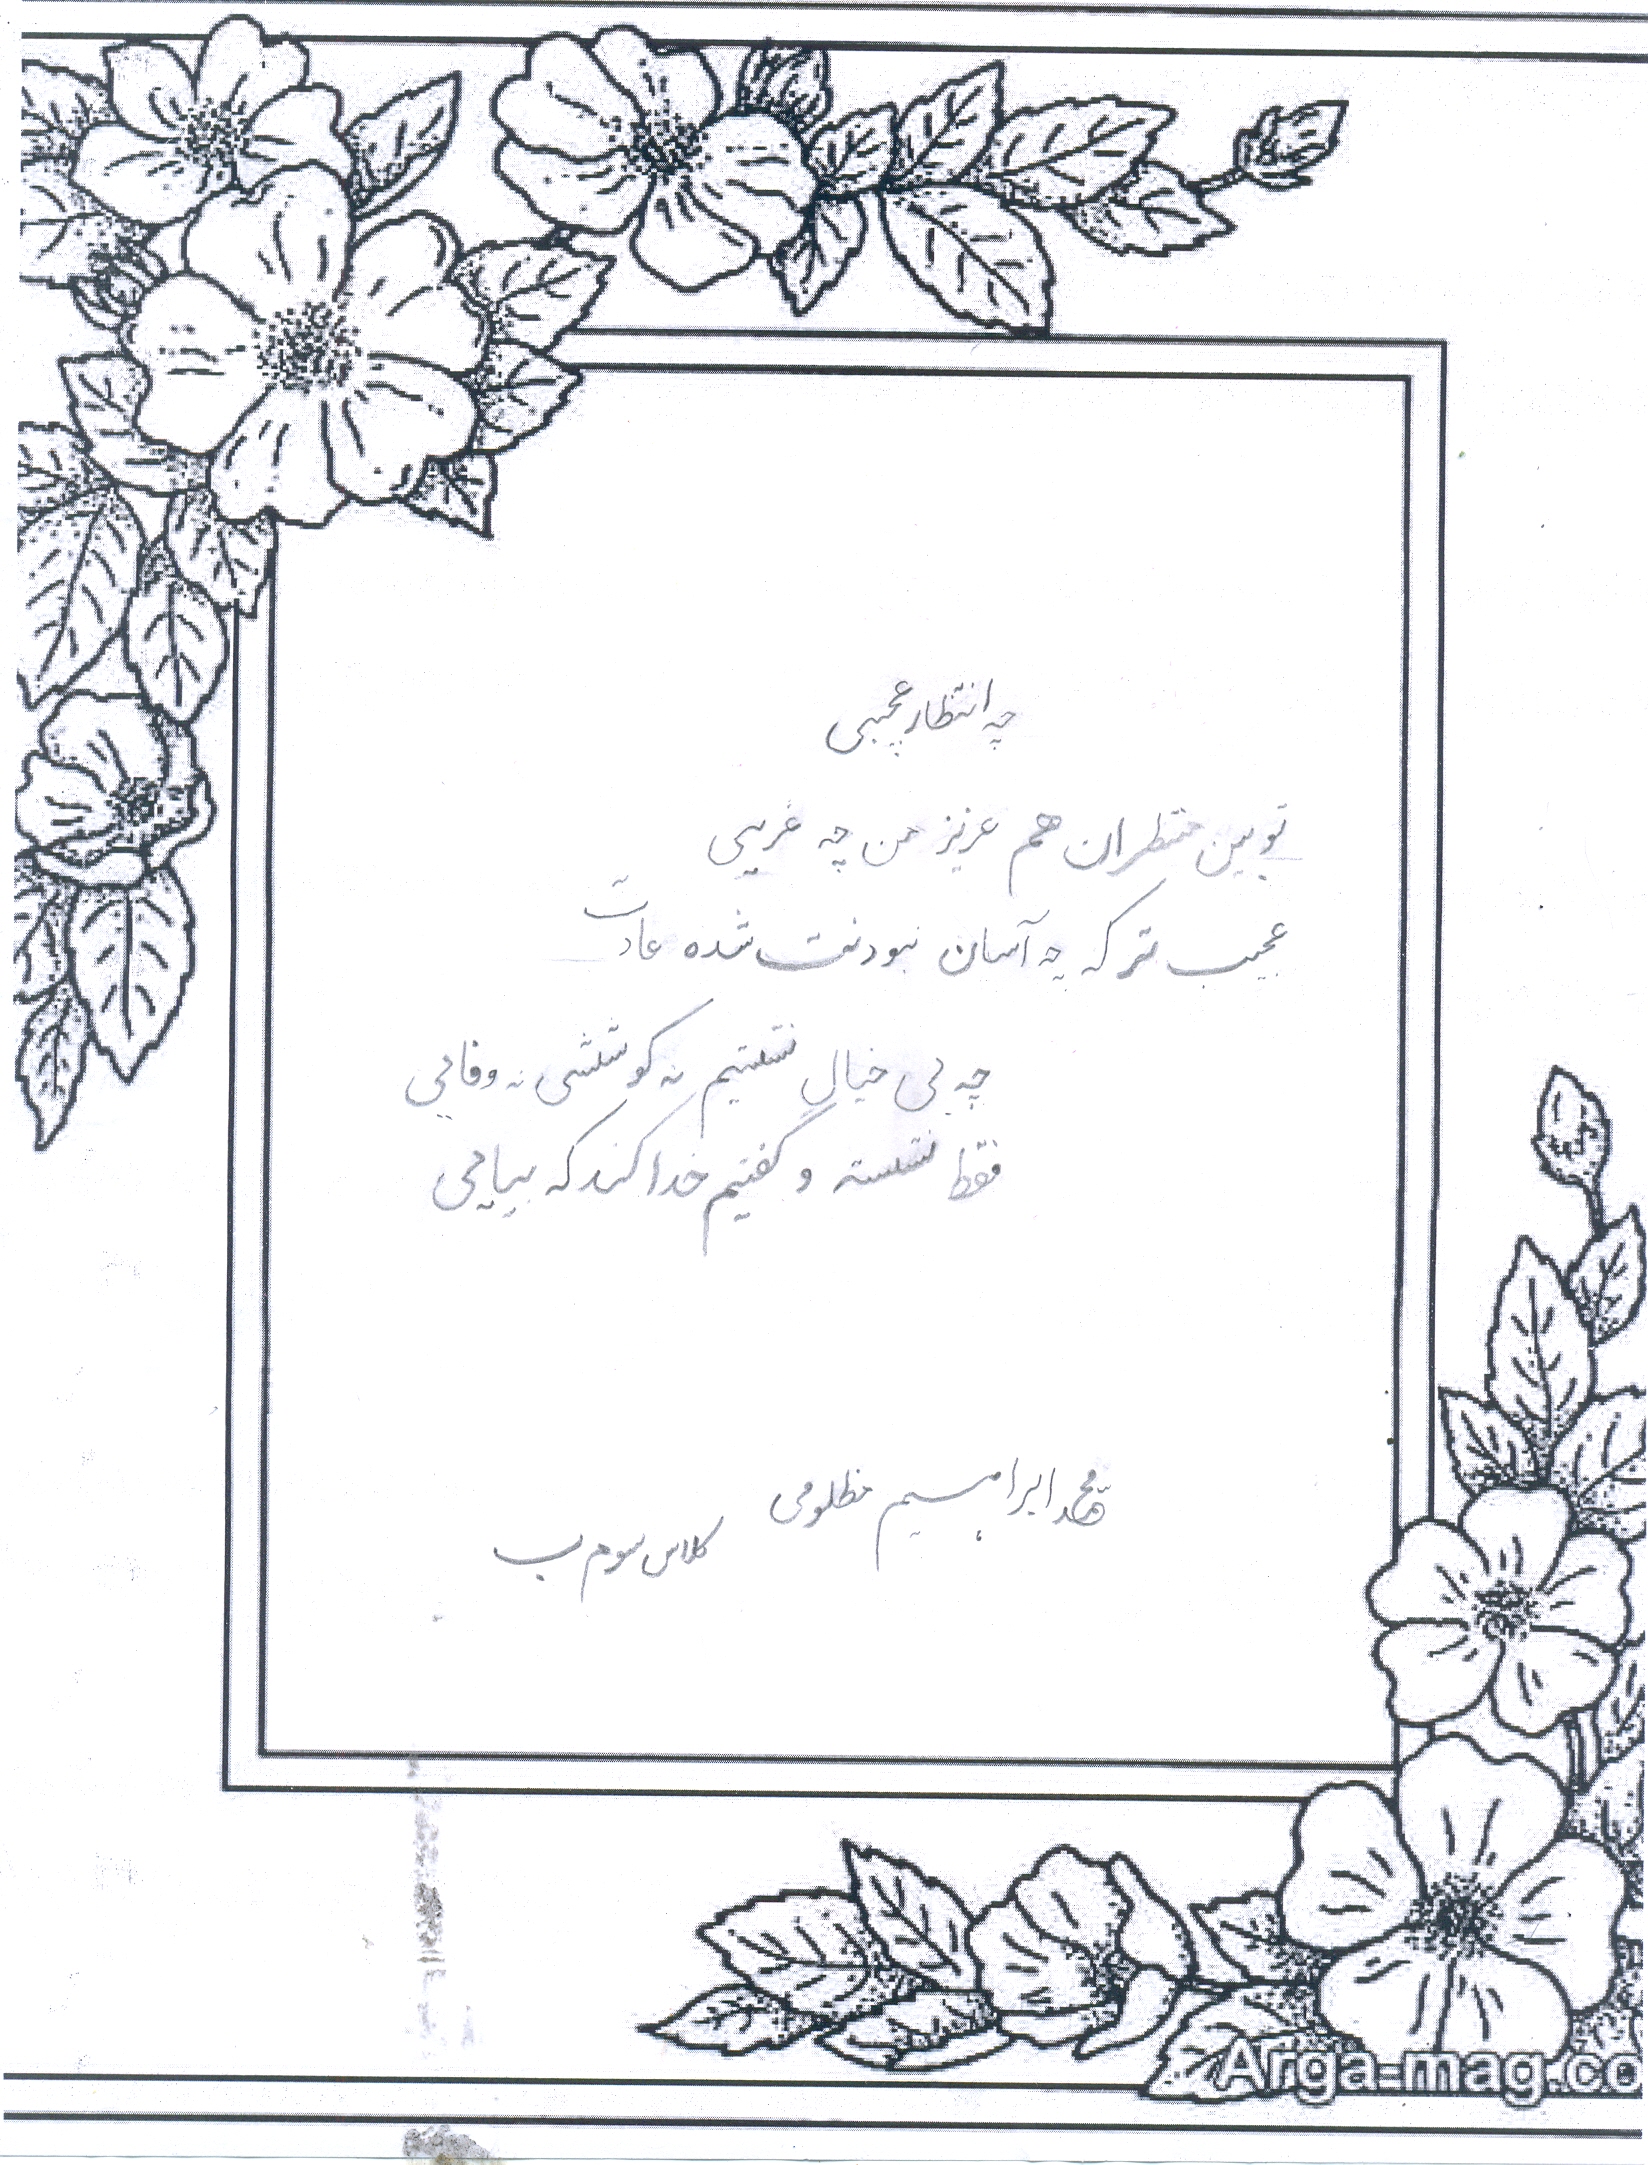 چه انتظار عجیبی
تو بین منتظران هم عزیز من چه غریبی
عجیب تر که چه آسان نبودنت شده عادت
چه بی خیال نشستیم نه کوششی نه وفایی
فقط نشسته و گفتیم خدا کند که بیایی
محمد ابراهیم مظلومی
کلاس سوم ب
Arga-mag.co